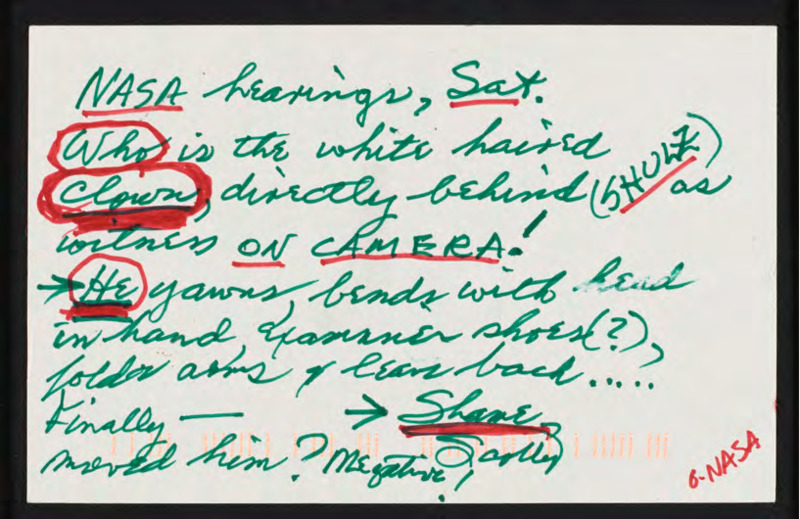 NASA hearings, Sat.
Who is the white haired
clown, directly behind (SHULTZ) as
witness ON CAMERA!
→ He yawns, bends with head
in hand, examines shoes (?),
folds arms & leans back.....
Finally — → Shame,
moved him? Negative! Scolly
6-NASA